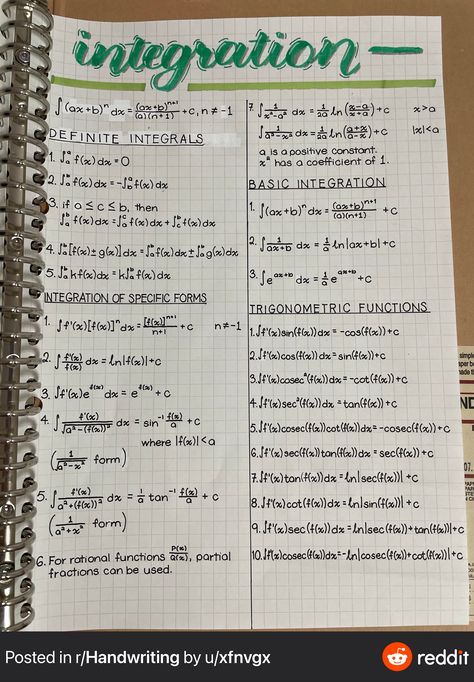 integration
∫(ax+b)ⁿ dx = (ax+b)ⁿ⁺¹/(a)(n+1) + c, n ≠ -1
DEFINITE INTEGRALS
1. ∫ₐᵃ f(x) dx = 0
2. ∫ₐᵇ f(x) dx = -∫ᵇₐ f(x) dx
3. if a ≤ c ≤ b, then
∫ₐᵇ f(x) dx = ∫ₐᶜ f(x) dx + ∫꜀ᵇ f(x) dx
4. ∫ₐᵇ [f(x) ± g(x)] dx = ∫ₐᵇ f(x) dx ± ∫ₐᵇ g(x) dx
5. ∫ₐᵇ kf(x) dx = k∫ₐᵇ f(x) dx
INTEGRATION OF SPECIFIC FORMS
1. ∫f'(x)[f(x)]ⁿ dx = [f(x)]ⁿ⁺¹/n+1 + c n ≠ -1
2. ∫ f'(x)/f(x) dx = ln|f(x)| + c
3. ∫f'(x)e^f(x) dx = e^f(x) + c
4. ∫ f'(x)/√(a²-(f(x))²) dx = sin⁻¹ f(x)/a + c
where |f(x)| < a
(1/√(a²-x²) form)
5. ∫ f'(x)/a²+(f(x))² dx = 1/a tan⁻¹ f(x)/a + c
(1/a²+x² form)
6. For rational functions P(x)/Q(x), partial
fractions can be used.
7. ∫ 1/x²-a² dx = 1/2a ln(x-a/x+a) + c x > a
∫ 1/a²-x² dx = 1/2a ln(a+x/a-x) + c |x| < a
a is a positive constant.
x² has a coefficient of 1.
BASIC INTEGRATION
1. ∫(ax+b)ⁿ dx = (ax+b)ⁿ⁺¹/(a)(n+1) + c
2. ∫ 1/ax+b dx = 1/a ln|ax+b| + c
3. ∫e^ax+b dx = 1/a e^ax+b + c
TRIGONOMETRIC FUNCTIONS
1. ∫f'(x)sin(f(x))dx = -cos(f(x)) + c
2. ∫f'(x)cos(f(x))dx = sin(f(x)) + c
3. ∫f'(x)cosec²(f(x))dx = -cot(f(x)) + c
4. ∫f'(x)sec²(f(x))dx = tan(f(x)) + c
5. ∫f'(x)cosec(f(x))cot(f(x))dx = -cosec(f(x)) + c
6. ∫f'(x)sec(f(x))tan(f(x))dx = sec(f(x)) + c
7. ∫f'(x)tan(f(x))dx = ln|sec(f(x))| + c
8. ∫f'(x)cot(f(x))dx = ln|sin(f(x))| + c
9. ∫f'(x)sec(f(x))dx = ln|sec(f(x))+tan(f(x))| + c
10. ∫f'(x)cosec(f(x))dx = -ln|cosec(f(x))+cot(f(x))| + c
Posted in r/Handwriting by u/xfnvgx
reddit